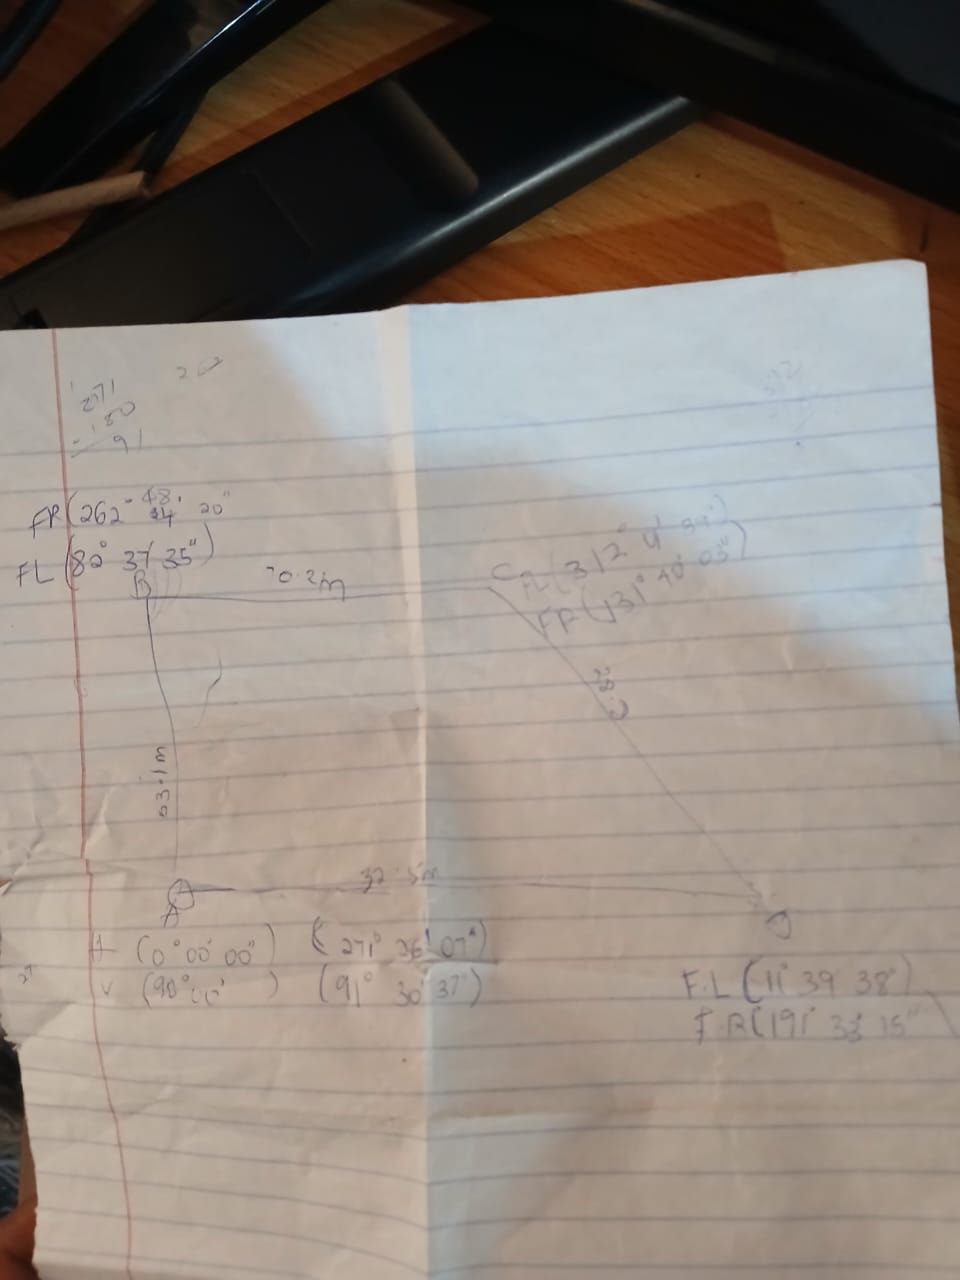 271
- 180
91
FR (262° 48' 20"
44
FL (82° 37' 35")
B
70.2m
C
FL (312° 4'
FR (131° 40' 03")
63.1m
32.5m
A
H (0° 00' 00") (271° 26' 07")
V (90° 00' ) (91° 30' 37")
F.L (11° 39 38")
F R (191° 33' 15"